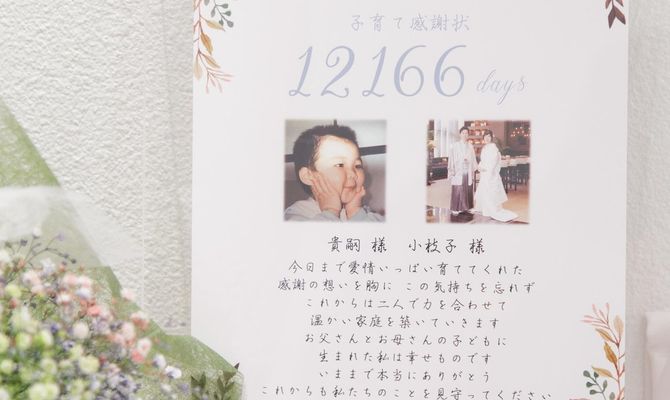 子育て感謝状
12166 days
貴嗣 様 小枝子 様
今日まで愛情いっぱい育ててくれた
感謝の想いを胸に この気持ちを忘れず
これからは二人で力を合わせて
温かい家庭を築いていきます
お父さんとお母さんの子どもに
生まれた私は幸せものです
いままで本当にありがとう
これからも私たちのことを見守ってください